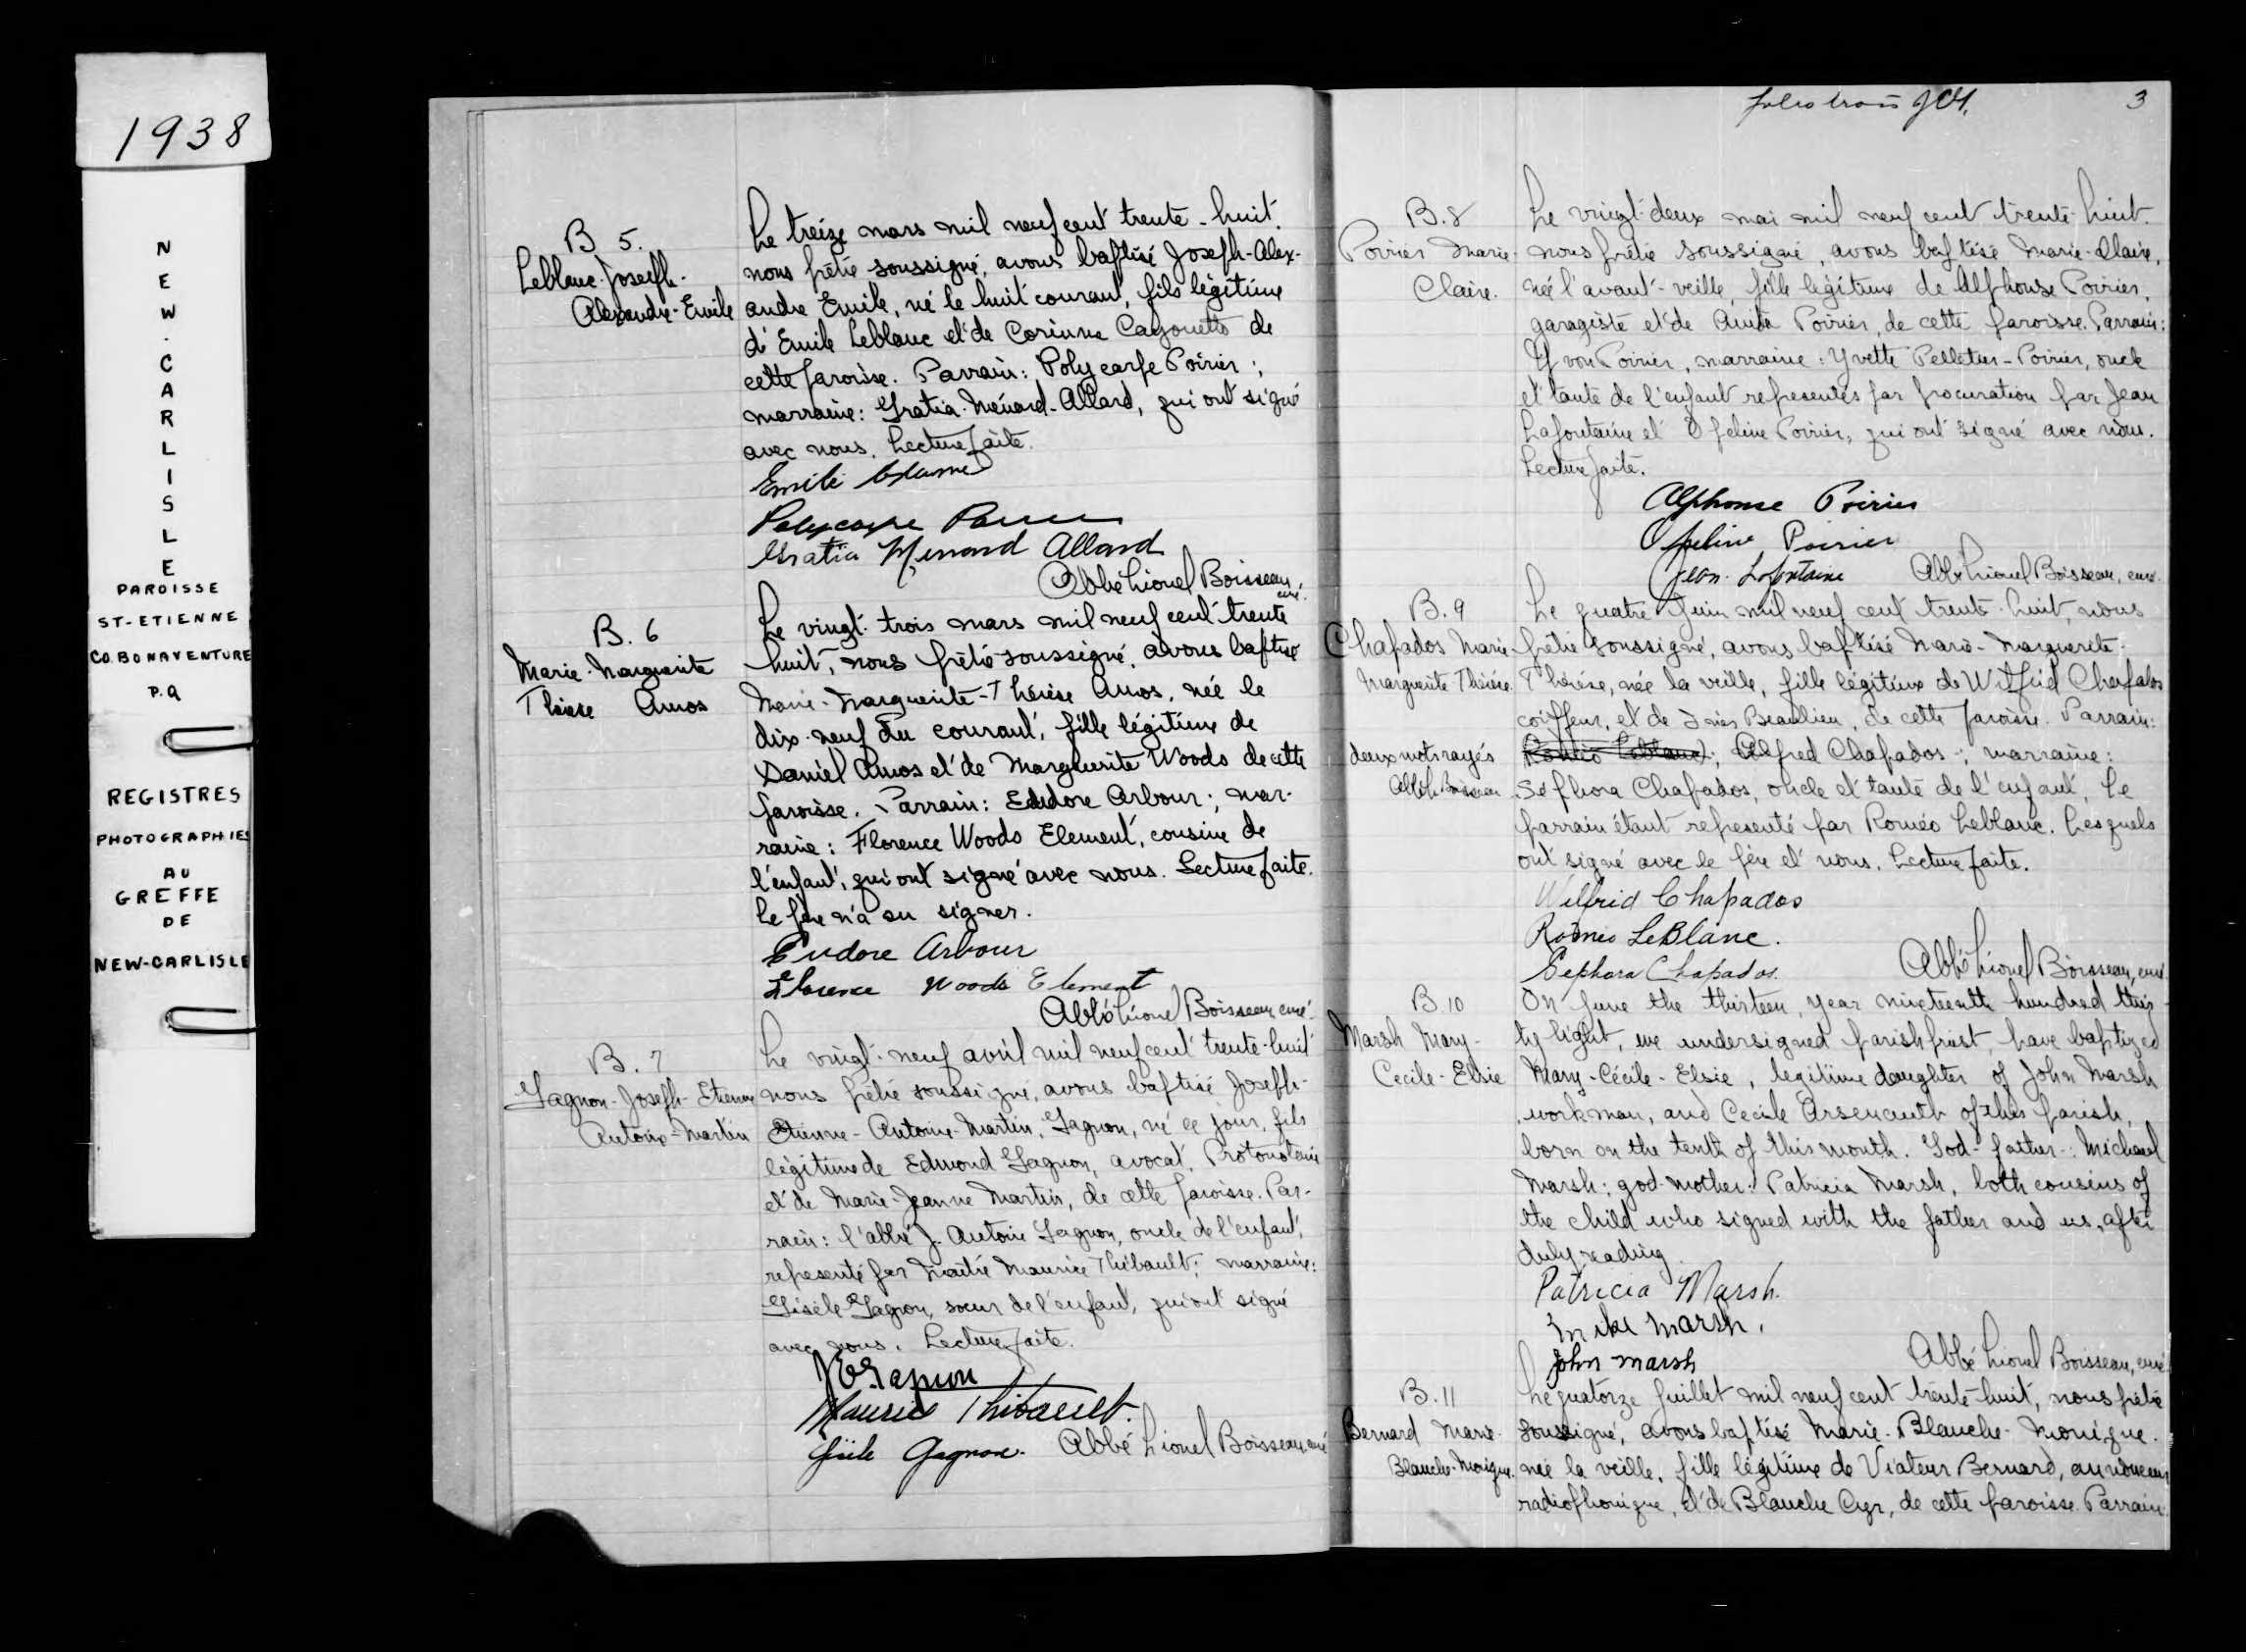 1938
NEW.CARLISLE
PAROISSE
ST-ETIENNE
CO.BONAVENTURE
P.Q
REGISTRES
PHOTOGRAPHIES
AU
GREFFE
DE
NEW-CARLISLE
B 5.
Leblanc-Joseph-
Alexandre-Emile
Le treize mars mil neuf cent trente-huit.
nous prêtre soussigné, avons baptisé Joseph-Alex-
andre Emile, né le huit courant, fils légitime
d'Emile Leblanc et de Corinne Cayouette de
cette paroisse. Parrain: Polycarpe Poirier;
marraine: Gratia Ménard-Allard, qui ont signé
avec nous. Lecture faite.
Emile
Polycarpe Poirier
Gratia Menard Allard
Abbé Lionel Boisseau,
curé.
B. 6
Marie-Marguerite
Thérèse Amos
Le vingt-trois mars mil neuf cent trente
huit, nous prêtre soussigné, avons baptisé
Marie-Marguerite-Thérèse Amos, née le
dix-neuf du courant, fille légitime de
Daniel Amos et de Marguerite Woods de cette
paroisse. Parrain: Eudore Arbour; mar-
raine: Florence Woods Element, cousine de
l'enfant, qui ont signé avec nous. Lecture faite.
Le père n'a su signer.
Eudore Arbour
Florence Woods Element
Abbé Lionel Boisseau, curé.
B. 7
Gagnon-Joseph-Etienne
Antoine-Martin
Le vingt-neuf avril mil neuf cent trente-huit
nous prêtre soussigné, avons baptisé Joseph-
Etienne-Antoine-Martin, Gagnon, né ce jour, fils
légitime de Edmond Gagnon, avocat, Protonotaire
et de Marie-Jeanne Martin, de cette paroisse. Par-
rain: l'abbé J. Antoine Gagnon, oncle de l'enfant,
representé par Maître Maurice Thibault; marraine:
Gisèle Gagnon, soeur de l'enfant, qui ont signé
avec nous. Lecture faite.
Gagnon
Maurice Thibault.
Gisèle Gagnon. Abbé Lionel Boisseau, curé
folio trois 3
B. 8
Poirier Marie-
Claire.
Le vingt-deux mai mil neuf cent trente-huit.
nous prêtre soussigné, avons baptisé Marie-Claire,
née l'avant-veille, fille légitime de Alphonse Poirier,
garagiste et de Anita Poirier, de cette paroisse. Parrain:
Yvon Poirier, marraine: Yvette Pelletier-Poirier, oncle
et tante de l'enfant representés par procuration par Jean
Lafontaine et Opeline Poirier, qui ont signé avec nous.
Lecture faite.
Alphonse Poirier
Opeline Poirier
Jean Lafontaine Abbé Lionel Boisseau, curé.
B. 9
Chapados Marie
Marguerite Thérèse.
deux mots rayés
Le quatre juin mil neuf cent trente-huit, nous
prêtre soussigné, avons baptisé Marie-Marguerite-
Thérèse, née la veille, fille légitime de Wilfrid Chapados
coiffeur, et de Inès Beaulieu, de cette paroisse. Parrain:
Roméo Leblanc; Alfred Chapados; marraine:
Séphora Chapados, oncle et tante de l'enfant, le
parrain étant representé par Roméo Leblanc. Lesquels
ont signé avec le père et nous. Lecture faite.
Wilfrid Chapados
Roméo LeBlanc.
Sephora Chapados. Abbé Lionel Boisseau, curé
B. 10
Marsh Mary-
Cecile-Elsie
On June the thirteen, year nineteenth hundred thir-
ty eight, we undersigned parish priest, have baptized
Mary-Cécile-Elsie, legitime daughter of John Marsh
workman, and Cecile Arseneault of this parish,
born on the tenth of this month. God-father: Michael
Marsh; god-mother: Patricia Marsh, both cousins of
the child who signed with the father and us, after
duly reading
Patricia Marsh.
Mike Marsh.
John Marsh Abbé Lionel Boisseau, curé
B. 11
Bernard Marie-
Blanche-Monique.
Le quatorze juillet mil neuf cent trente-huit, nous prêtre
soussigné, avons baptisé Marie-Blanche-Monique.
née la veille, fille légitime de Viateur Bernard, annonceur
radiophonique, et de Blanche Cyr, de cette paroisse. Parrain: